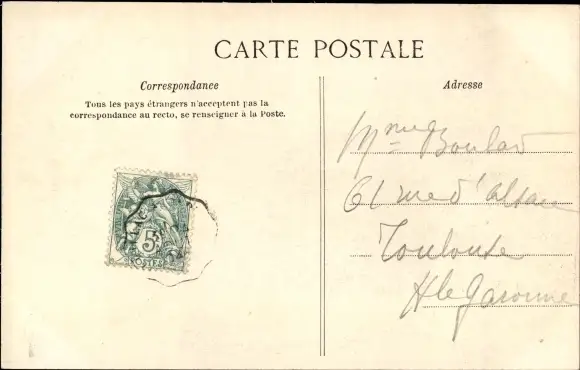 CARTE POSTALE
Correspondance
Tous les pays étrangers n'acceptent pas la
correspondance au recto, se renseigner à la Poste.
Adresse
Mme Boulad
61 rue d'alsace
Toulouse
Hte Garonne
5c
POSTES